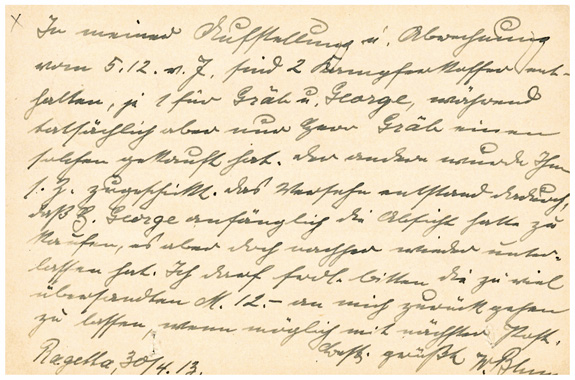 In meiner Aufstellung u. Abrechnung
vom 5.12. v. J. sind 2 Kampferkoffer ent-
halten, je 1 für Gräb u. George, während
tatsächlich aber nur Herr Gräb einen
solchen gekauft hat. Der andere wurde Ihnen
s. Z. zugeschickt. Das Versehn entstand dadurch,
daß H. George anfänglich die Absicht hatte zu
kaufen, es aber doch nachher wieder unter-
lassen hat. Ich darf frdl. bitten die zu viel
übersandten M. 12.- an mich zurück gehen
zu lassen, wenn möglich mit nächster Post.
grüßt W. Blum
Ragetta, 30/4. 13.